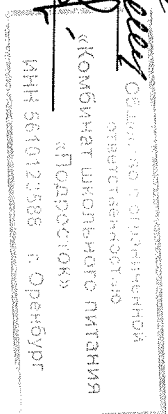 Общество с ограниченной
ответственностью
«Комбинат школьного питания
«Подросток»
ИНН 5610123588 г. Оренбург